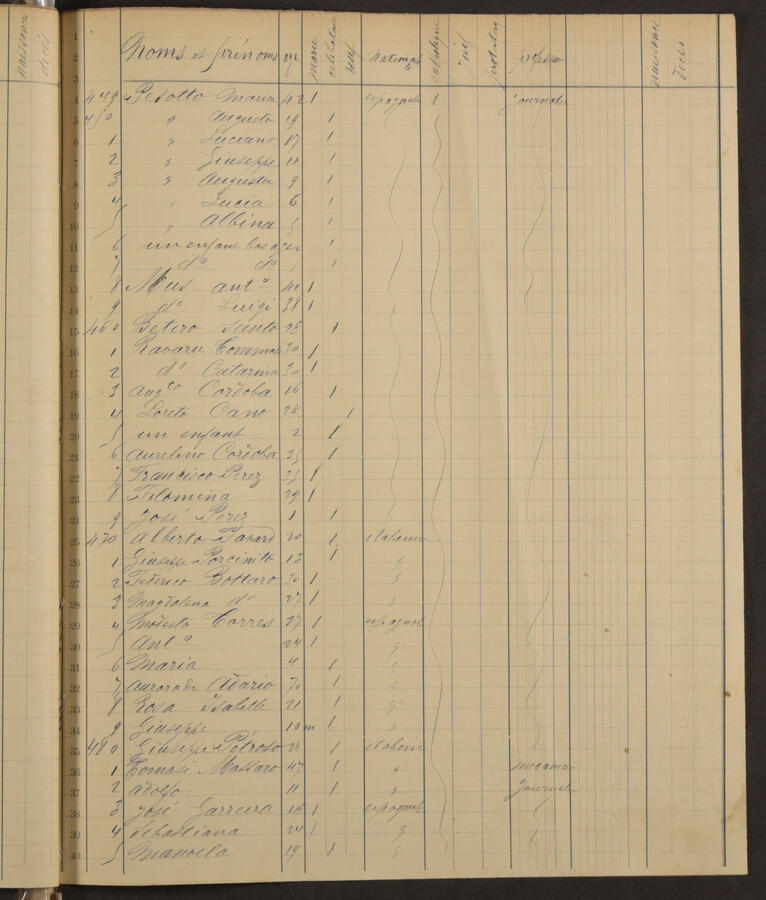 naissance décès
Noms et prénoms age marié célibataire veuf national catholique juif protestan profession naissance décès
1
2
3
4 449 Pesotto Maria 42 1 espagnole 1 journalie
5 450 " Augusto 19 1
6 1 " Luciano 17 1
7 2 " Giuseppe 11 1
8 3 " Augusta 9 1
9 4 " Lucia 6 1
10 5 " Albina 5 1
11 6 un enfant bas age 1
12 7 do do 1
13 8 Mus anto 40 1
14 9 do Luigi 38 1
15 460 Betero Santo 28 1
16 1 Ravaru Tommaso 30 1
17 2 do Catarina 30 1
18 3 Augto Cordoba 16 1
19 4 Loreto Cano 28 1
20 5 un enfant 2 1
21 6 Aurelino Cordoba 35 1
22 7 Francisco Perez 35 1
23 8 Filomena 29 1
24 9 José Perez 1 1
25 470 Alberto 20 1 italienne
26 1 Giuseppe Porcinito 13 1 "
27 2 Federico Bottaro 30 1 "
28 3 Magdalena do 27 1 "
29 4 Modesto Torres 27 1 espagnole
30 5 Anto 24 1 "
31 6 Maria 4 1 "
32 7 Aurora de 70 1 "
33 8 Rosa Isabelle 21 1 "
34 9 Giuseppe 10 m 1 "
35 480 Giuseppe Pedroso 28 1 italienne
36 1 Tomasi Massaro 47 1 " mecanicie
37 2 Adolfo 11 1 " journalie
38 3 José Garreira 18 1 espagnole
39 4 Sebastiana 24 1 "
40 5 Manoela 19 1 "